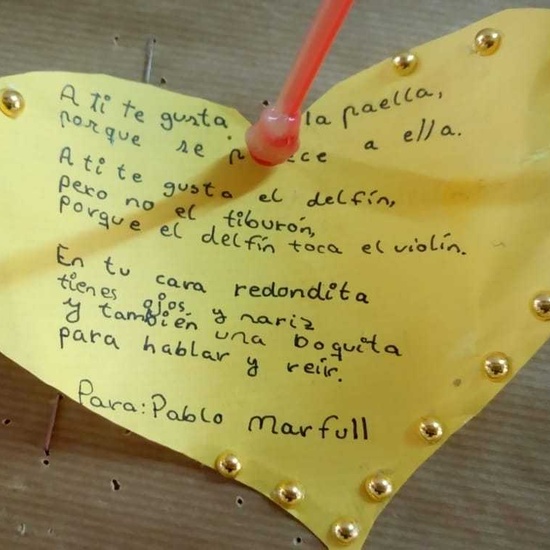 A ti te gusta la paella,
porque se a ella.
A ti te gusta el delfín,
pero no el tiburón,
porque el delfín toca el violín.
En tu cara redondita
tienes ojos y nariz
y también una boquita
para hablar y reír.
Para: Pablo Marfull